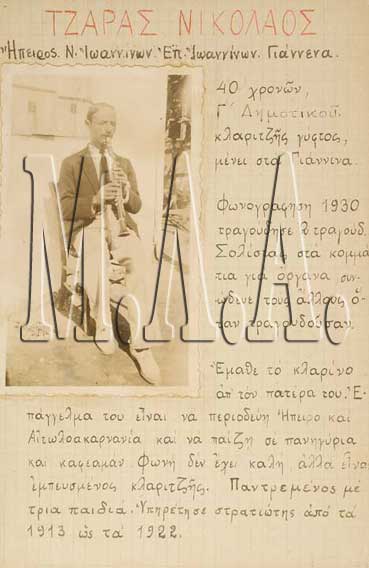 ΤΖΑΡΑΣ ΝΙΚΟΛΑΟΣ
Ἤπειρος. Ν. Ἰωαννίνων. Ἐπ. Ἰωαννίνων. Γιάννενα.
40 χρονῶν,
Γ΄ Δημοτικοῦ
κλαριτζῆς γύφτος,
μένει στά Γιάννινα.
Φωνογράφηση 1930
τραγούδησε 2 τραγούδ.
Σολίστας στά κομμά
τια γιά ὄργανα συν-
ώδευε τούς ἄλλους ὅ-
ταν τραγουδοῦσαν.
Ἔμαθε τό κλαρίνο
ἀπ' τόν πατέρα του. Ἐ-
πάγγελμα του εἶναι νά περιοδεύη Ἤπειρο καί
Αἰτωλοακαρνανία καί νά παίζη σέ πανηγύρια
καί καφεαμάν. Φωνή δέν ἔχει καλή, ἀλλά εἶναι
ἐμπευσμένος κλαριτζῆς. Παντρεμένος μέ
τρία παιδιά. Ὑπηρέτησε στρατιώτης ἀπό τά
1913 ὡς τά 1922.
M.L.A.